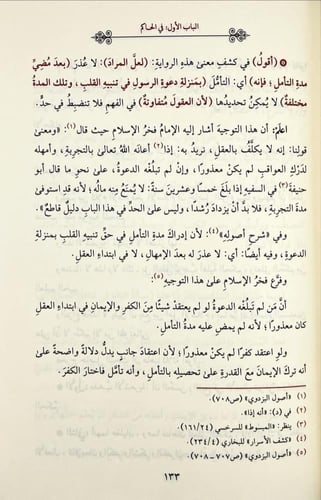 الباب الأول: في الحاكم
• (أقول) في كشفِ معنى هذهِ الروايةِ: (لعلَّ المرادَ): لا عُذرَ (بعدَ مُضِيِّ
مدةِ التأملِ؛ فإنه) أي: التأمُّلَ (بمنزلةِ دعوةِ الرسولِ في تنبيهِ القلبِ، وتلك المدةُ
مختلفةٌ) لا يُمكِنُ تحديدُها (لأن العقولَ متفاوتةٌ) في الفهمِ فلا تنضبطُ في حدٍّ.
اعلمْ: أن هذا التوجيهَ أشار إليه الإمامُ فخرُ الإسلامِ حيث قال(١): «ومعنى
قولِنا: إنه لا يكلَّفُ بالعقلِ، نريدُ به: إذا(٢) أعانَهُ اللهُ تعالى بالتجرِبةِ، وأمهلَه
لدَرْكِ العواقبِ لم يكن معذورًا، وإن لم تبلُغْه الدعوةُ، على نحوِ ما قال أبو
حنيفةَ(٣) في السفيهِ إذا بلَغ خمسًا وعشرينَ سنةً: لا يُمنَعُ منه مالُه؛ لأنه قدِ استوفى
مدةَ التجرِبةِ، فلا بدَّ أن يزدادَ رُشدًا، وليس على الحدِّ في هذا البابِ دليلٌ قاطعٌ».
وفي «شرحِ أصولِه»(٤): لأن إدراكَهُ مدةَ التأملِ في حقِّ تنبيهِ القلبِ بمنزلةِ
الدعوةِ، وفيه أيضًا: أي: لا عذرَ له بعدَ الإمهالِ، لا في ابتداءِ العقلِ.
وفرَّع فخرُ الإسلامِ على هذا التوجيهِ(٥):
أنَّ مَن لم تَبلُغْه الدعوةُ لو لم يعتقدْ شيئًا مِنَ الكفرِ والإيمانِ في ابتداءِ العقلِ
كان معذورًا؛ لأنه لم يمضِ عليه مدةُ التأملِ.
ولوِ اعتقد كفرًا لم يكنْ معذورًا؛ لأن اعتقادَ جانبٍ يدلُّ دلالةً واضحةً على
أنه تركَ الإيمانَ معَ القدرةِ على تحصيلِه بالتأملِ، وأنه تأمَّل فاختارَ الكفرَ.
(١) «أصول البزدوي» (ص٧٠٨).
(٢) في (د): «أنه إذا».
(٣) ينظر: «المبسوط» للسرخسي (١٦١/٢٤).
(٤) «كشف الأسرار» للبخاري (٢٣٤/٤).
(٥) «أصول البزدوي» (ص٧٠٧-٧٠٨).
١٣٣